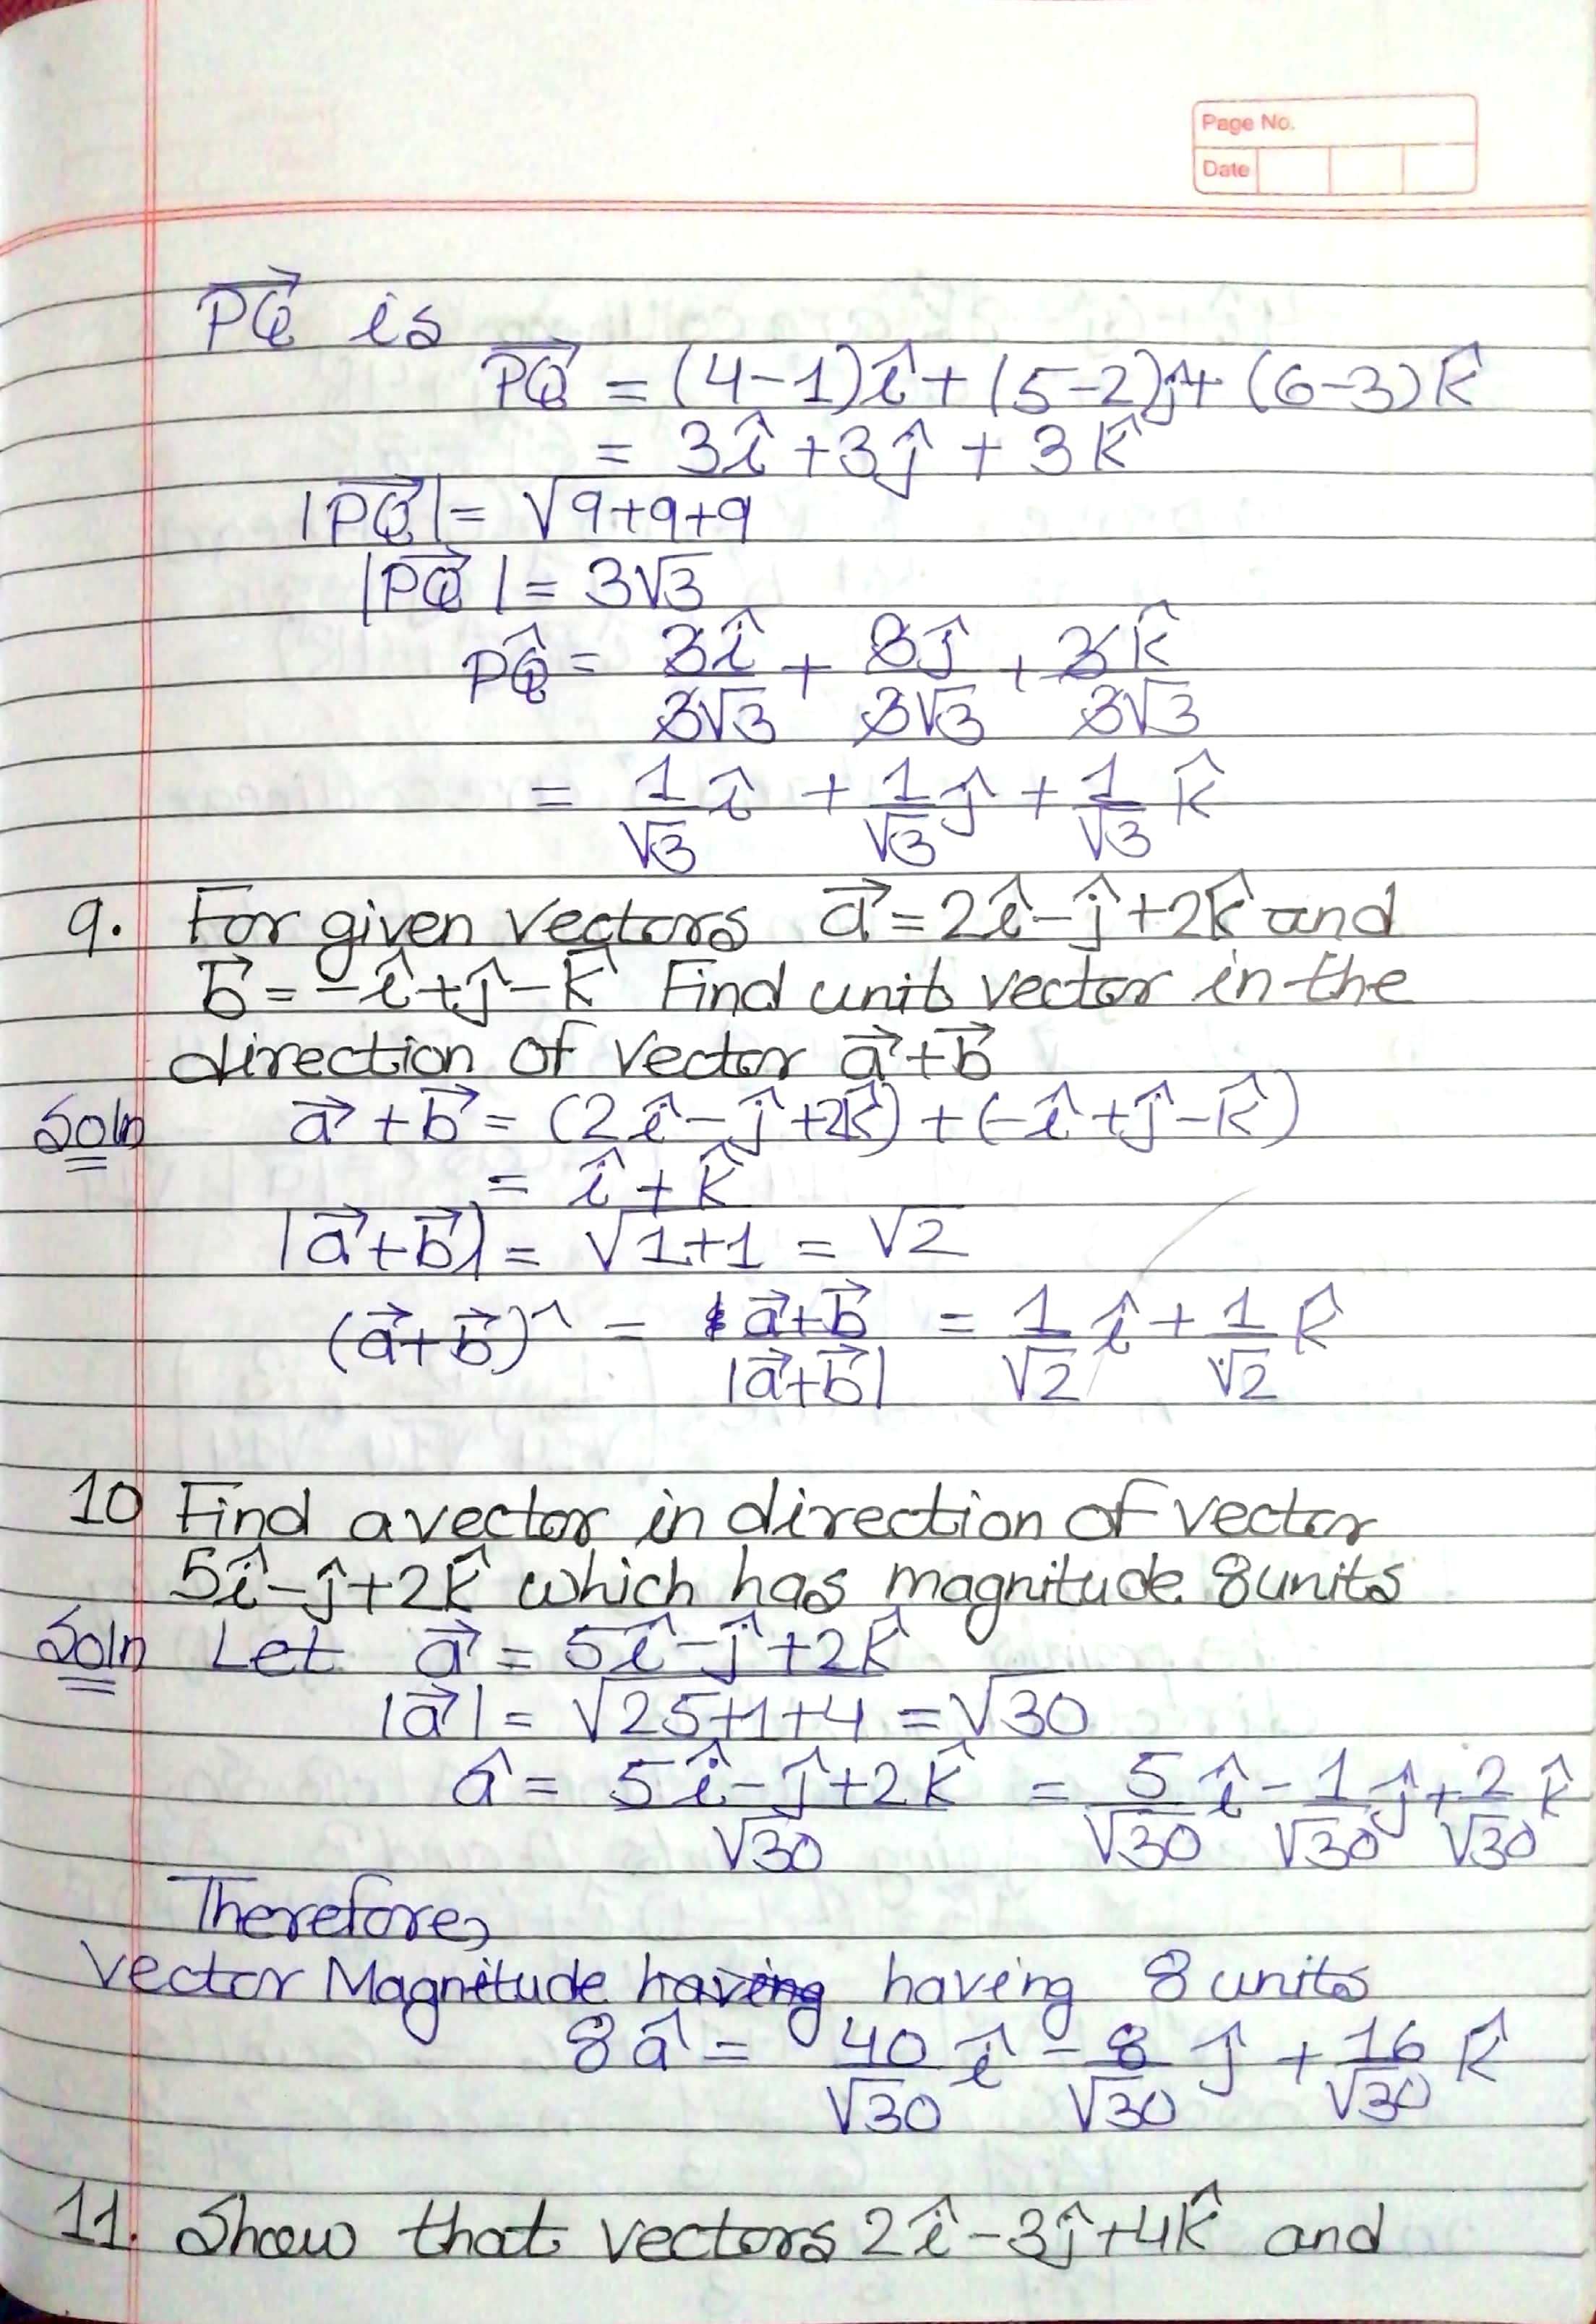 Page No.
Date
PQ⃗ is
PQ⃗ = (4-1)î + (5-2)ĵ + (6-3)k̂
= 3î + 3ĵ + 3k̂
|PQ⃗| = √9+9+9
|PQ⃗| = 3√3
PQ̂ = 3î/3√3 + 3ĵ/3√3 + 3k̂/3√3
= 1/√3 î + 1/√3 ĵ + 1/√3 k̂
9. For given vectors a⃗ = 2î - ĵ + 2k̂ and
b⃗ = -î + ĵ - k̂ Find unit vector in the
direction of vector a⃗ + b⃗
Soln a⃗ + b⃗ = (2î - ĵ + 2k̂) + (-î + ĵ - k̂)
= î + k̂
|a⃗ + b⃗| = √1+1 = √2
(a⃗ + b⃗)^ = a⃗ + b⃗/|a⃗ + b⃗| = 1/√2 î + 1/√2 k̂
10 Find a vector in direction of vector
5î - ĵ + 2k̂ which has magnitude 8 units
Soln Let a⃗ = 5î - ĵ + 2k̂
|a⃗| = √25+1+4 = √30
â = 5î - ĵ + 2k̂/√30 = 5/√30 î - 1/√30 ĵ + 2/√30 k̂
Therefore,
Vector Magnitude having having 8 units
8â = 40/√30 î - 8/√30 ĵ + 16/√30 k̂
11. Show that vectors 2î - 3ĵ + 4k̂ and